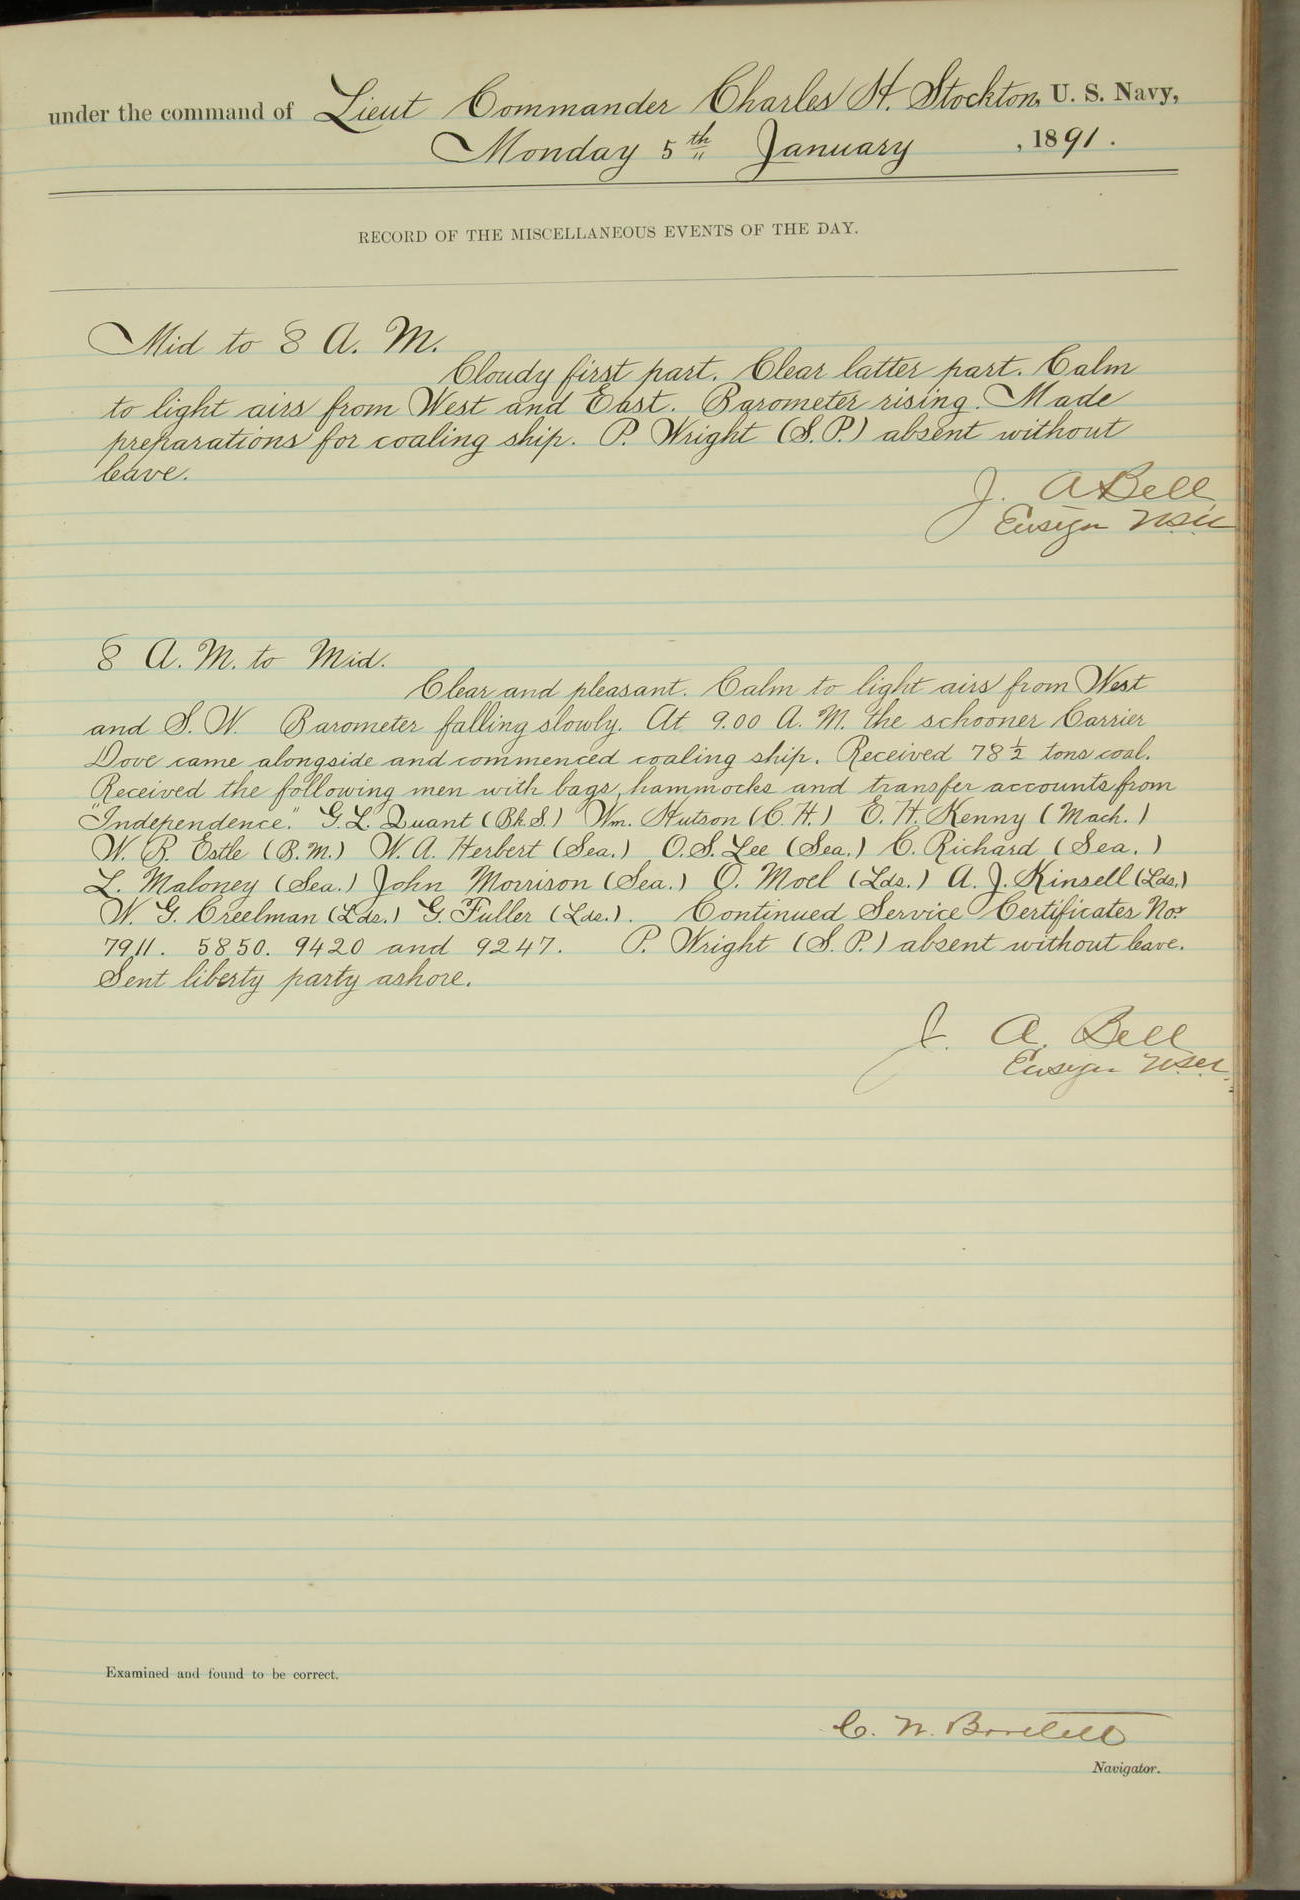 under the command of Lieut Commander Charles H. Stockton, U. S. Navy,
Monday 5th January , 1891.
RECORD OF THE MISCELLANEOUS EVENTS OF THE DAY.
Mid to 8 A. M.
Cloudy first part. Clear latter part. Calm
to light airs from West and East. Barometer rising. Made
preparations for coaling ship. P. Wright (S.P.) absent without
leave.
J. A Bell
Ensign USN
8 A. M. to Mid.
Clear and pleasant. Calm to light airs from West
and S. W. Barometer falling slowly. At 9.00 A. M. the schooner Carrier
Dove came alongside and commenced coaling ship. Received 78 1/2 tons coal.
Received the following men with bags, hammocks and transfer accounts from
"Independence." G. L. Quant (Bk. S.) Wm. Hutson (C. H.) E. H. Kenny (Mach.)
W. R. Estle (B. M.) W. A. Herbert (Sea.) O. S. Lee (Sea.) C. Richard (Sea.)
L. Maloney (Sea.) John Morrison (Sea.) O. Moel (Lds.) A. J. Kinsell (Lds.)
W. G. Creelman (Lds.) G. Fuller (Lds.). Continued Service Certificates Nos
7911. 5850. 9420 and 9247. P. Wright (S. P.) absent without leave.
Sent liberty party ashore.
J. A. Bell
Ensign USN.
Examined and found to be correct.
C. W. Bartlett
Navigator.